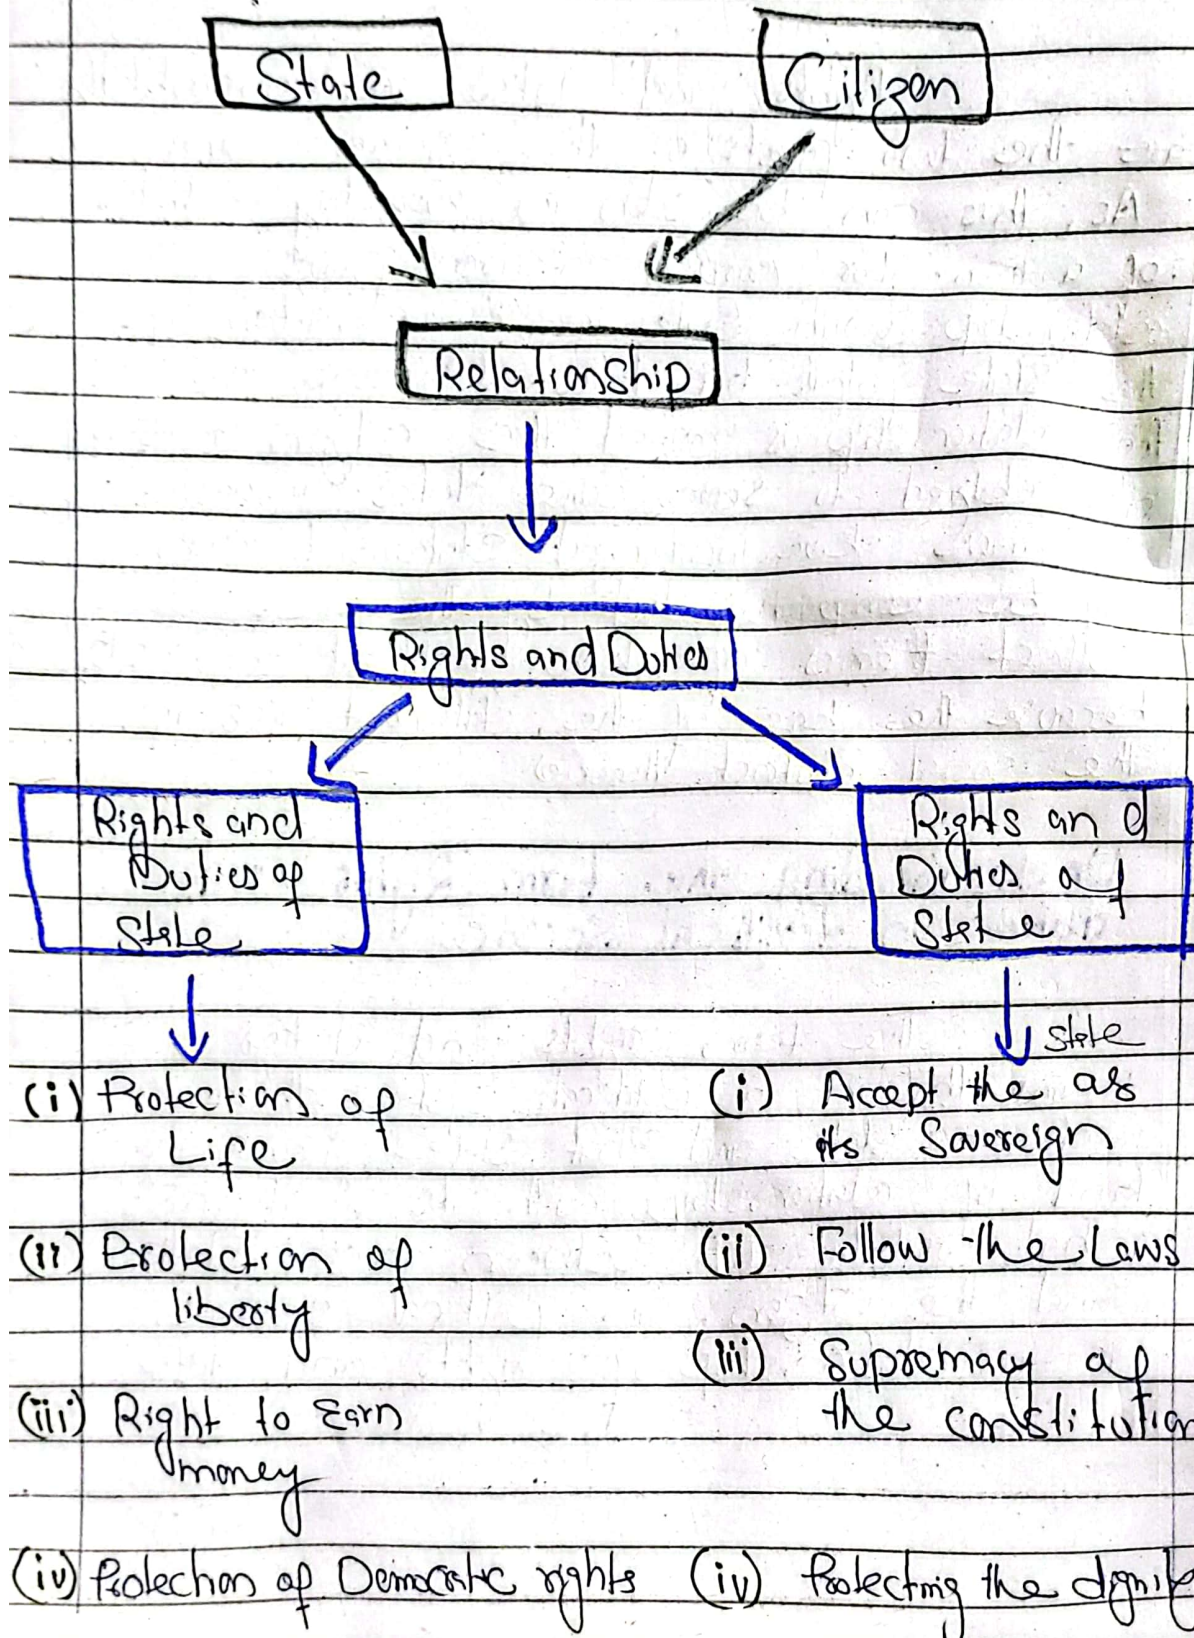 State
Citizen
Relationship
Rights and Duties
Rights and
Duties of
State
Rights and
Duties of
State
(i) Protection of
Life
(ii) Protection of
liberty
(iii) Right to Earn
money
(iv) Protection of Democratic rights
state
(i) Accept the as
its Sovereign
(ii) Follow the Laws
(iii) Supremacy of
the constitution
(iv) Protecting the